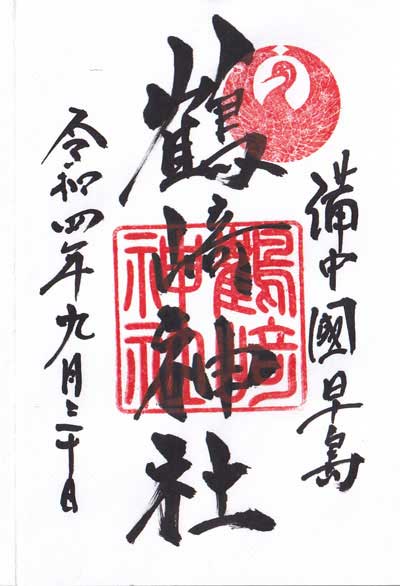 備中國早島
鶴﨑神社
鶴﨑神社
令和四年九月三十日